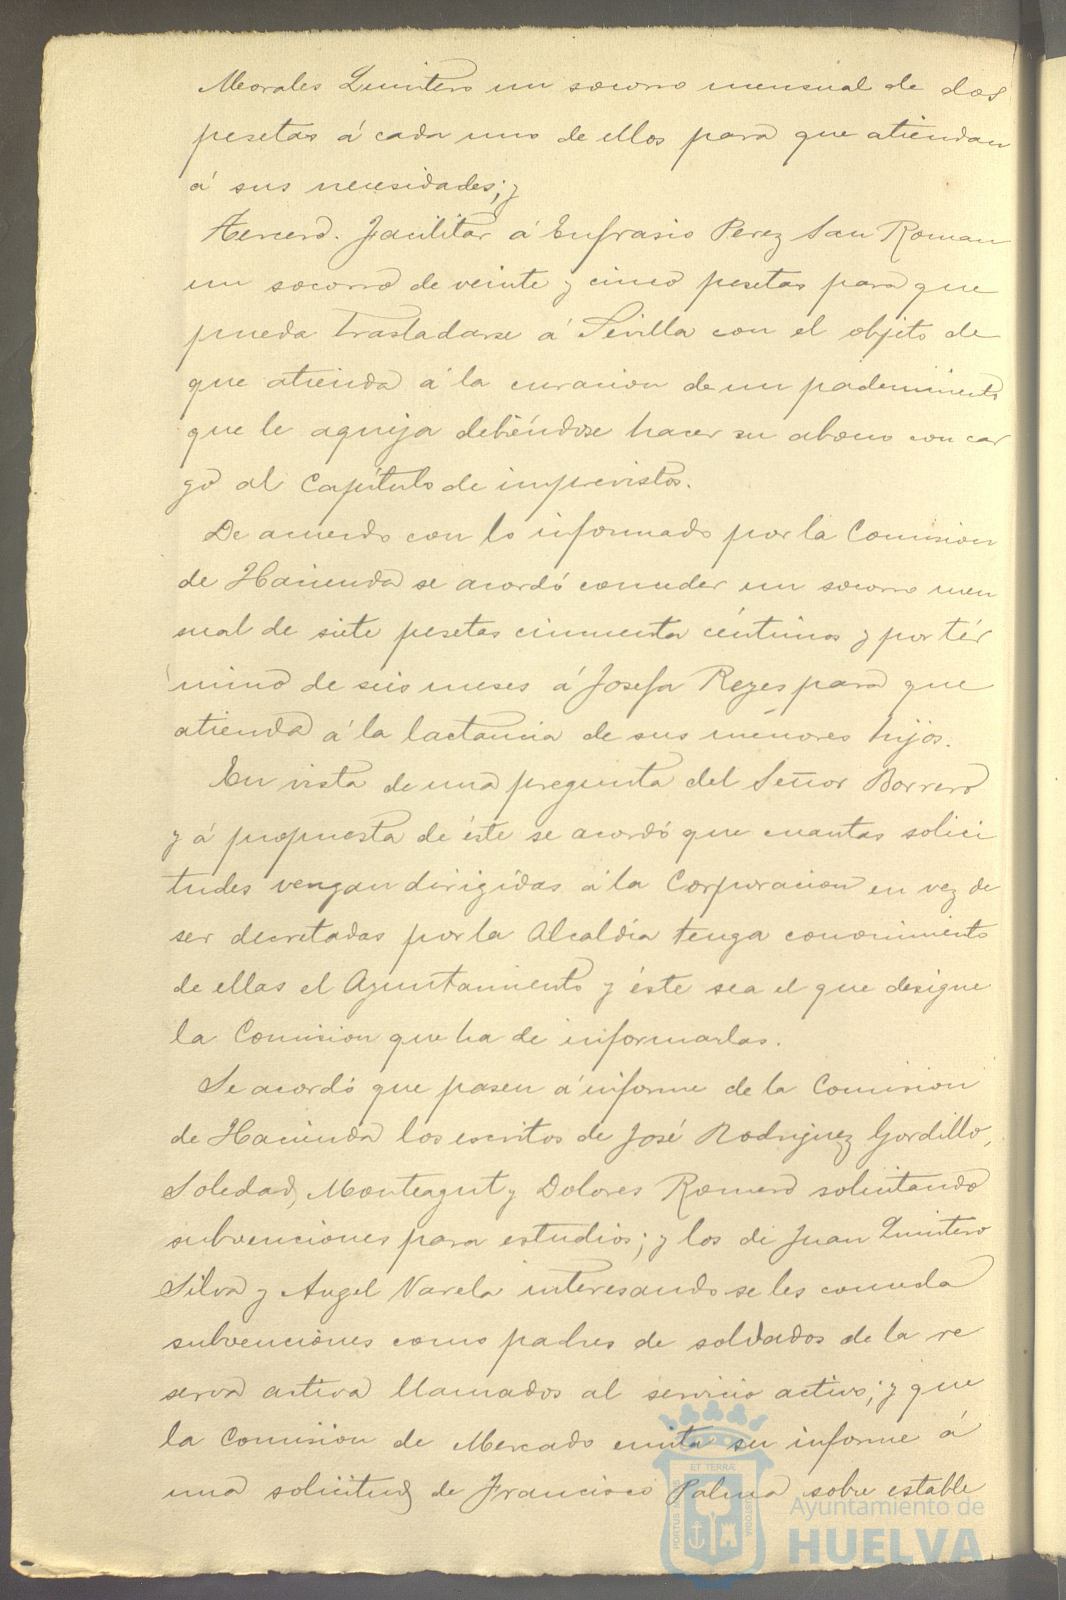 Morales Quintero un socorro mensual de dos
pesetas á cada uno de ellos para que atiendan
á sus necesidades; y
Tercero. Facilitar á Eufrasio Perez San Roman
un socorro de veinte y cinco pesetas para que
pueda trasladarse á Sevilla con el objeto de
que atienda á la curacion de un padecimiento
que le aqueja debiéndose hacer su abono con car
go al Capítulo de imprevistos.
De acuerdo con lo informado por la Comision
de Hacienda se acordó conceder un socorro men
sual de siete pesetas cincuenta céntimos y por tér
mino de seis meses á Josefa Reyes para que
atienda á la lactancia de sus menores hijos.
En vista de una pregunta del Señor Borrero
y á propuesta de éste se acordó que cuantas solici
tudes vengan dirigidas á la Corporacion en vez de
ser decretadas por la Alcaldía tenga conocimiento
de ellas el Ayuntamiento y éste sea el que designe
la Comision que ha de informarlas.
Se acordó que pasen á informe de la Comision
de Hacienda los escritos de José Rodriguez Gordillo,
Soledad Monteagut y Dolores Romero solicitando
subvenciones para estudios; y los de Juan Quintero
Silva y Angel Varela interesando se les conceda
subvenciones como padres de soldados de la re
serva activa llamados al servicio activo; y que
la Comision de Mercado emita su informe á
una solicitud de Francisco Palma sobre estable
PORTUS MARIS ET TERRÆ CUSTODIA
Ayuntamiento de
HUELVA